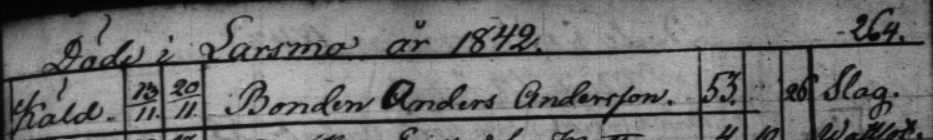 Döde i Larsmo år 1842. 264.
Kåld. 13/11. 20/11. Bonden Anders Andersson. 53. 26 Slag.